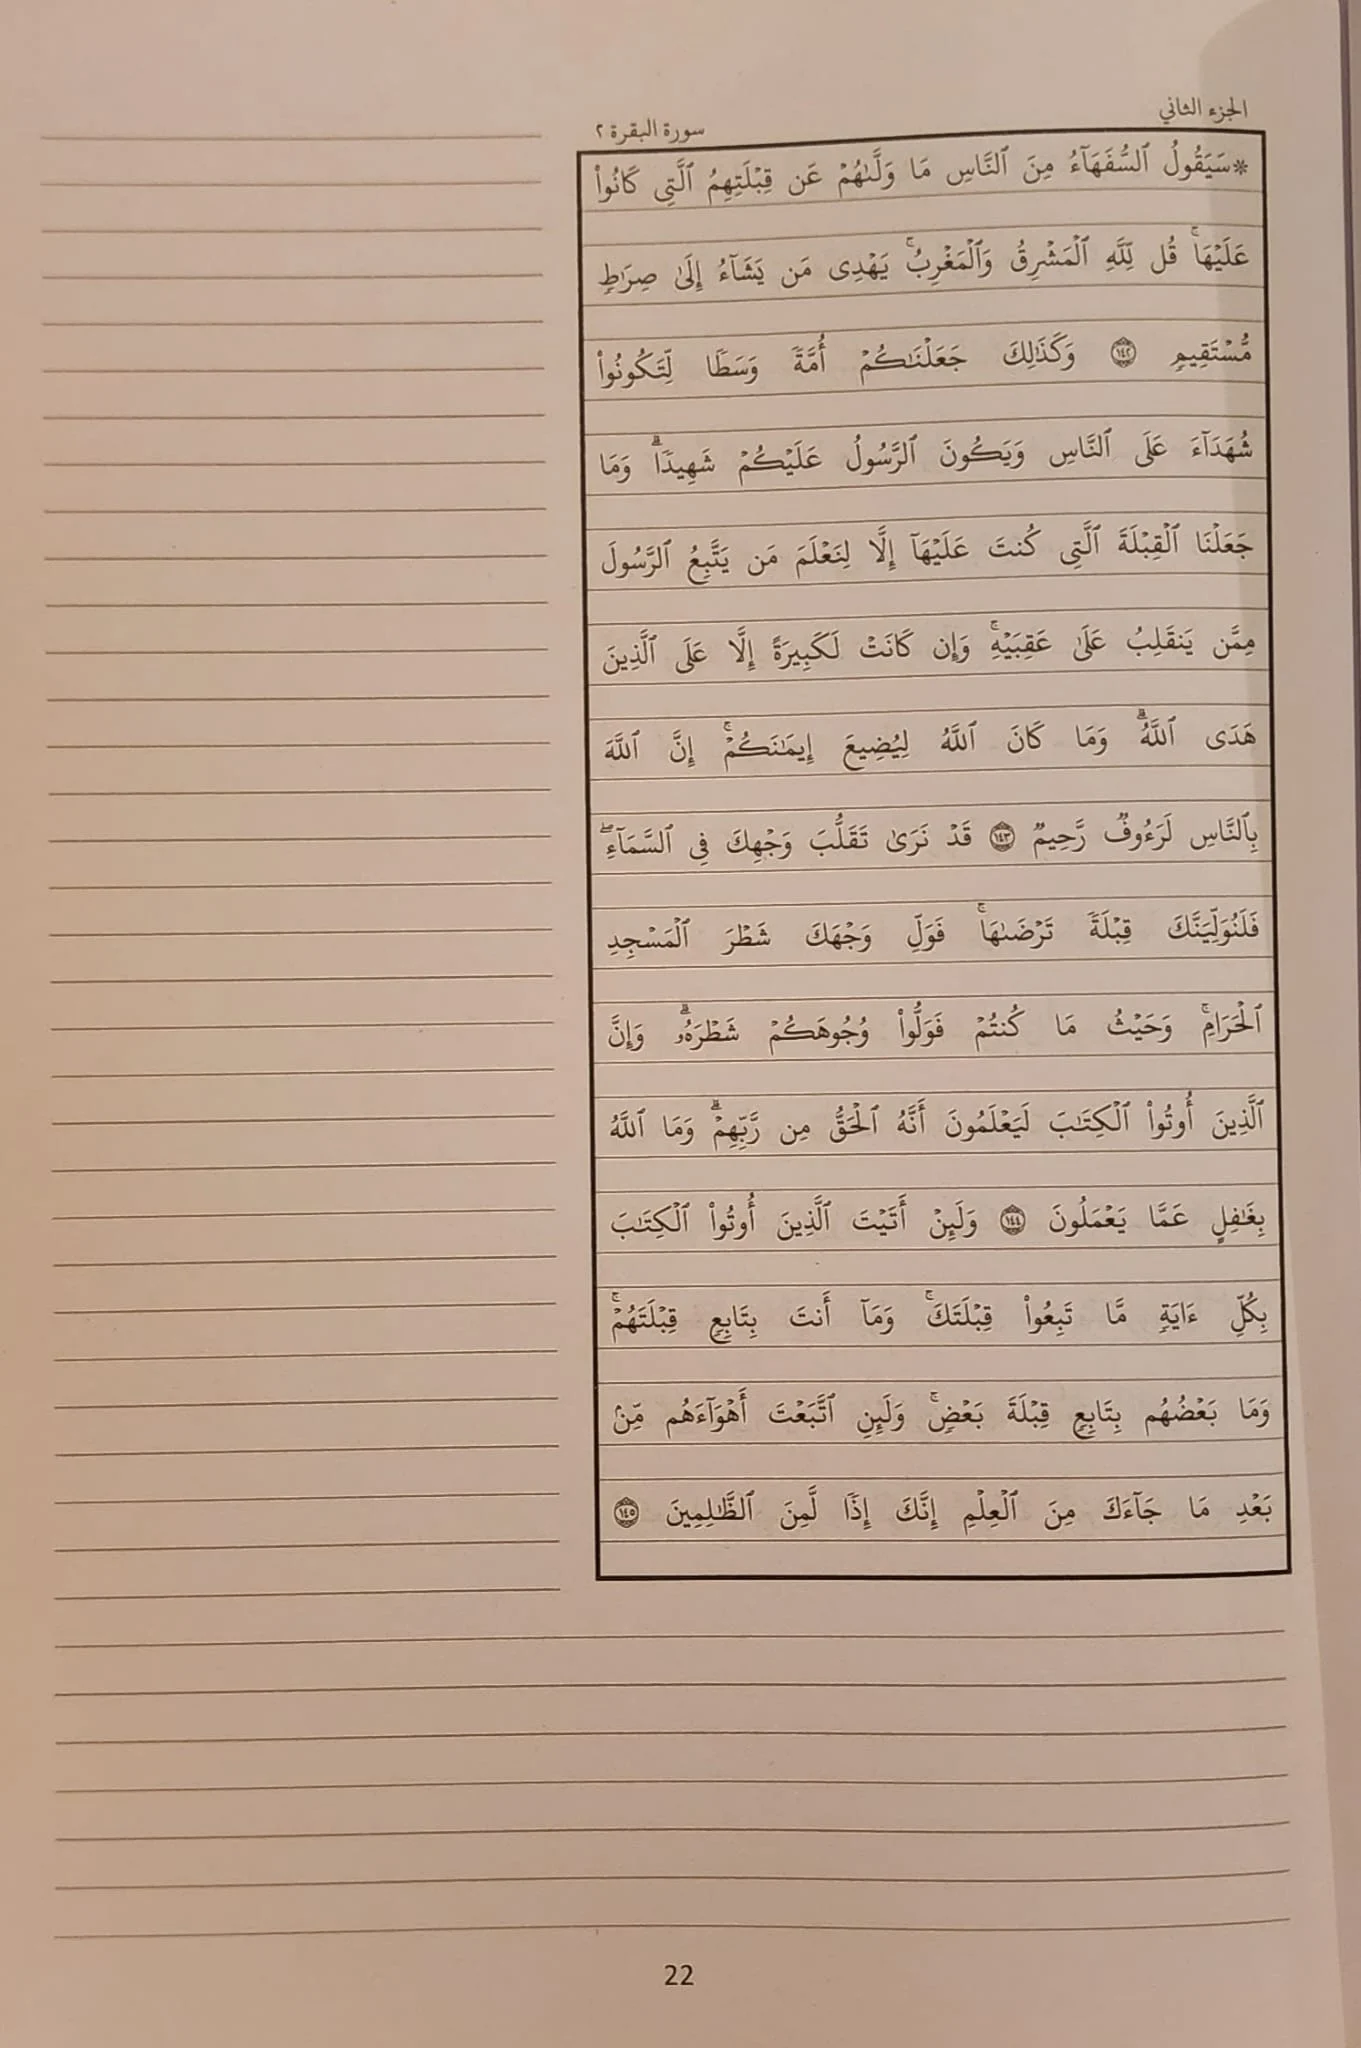 الجزء الثاني
سورة البقرة ٢
۞ سَيَقُولُ ٱلسُّفَهَآءُ مِنَ ٱلنَّاسِ مَا وَلَّىٰهُمْ عَن قِبْلَتِهِمُ ٱلَّتِى كَانُوا۟
عَلَيْهَا ۚ قُل لِّلَّهِ ٱلْمَشْرِقُ وَٱلْمَغْرِبُ ۚ يَهْدِى مَن يَشَآءُ إِلَىٰ صِرَٰطٍ
مُّسْتَقِيمٍ ١٤٢ وَكَذَٰلِكَ جَعَلْنَٰكُمْ أُمَّةً وَسَطًا لِّتَكُونُوا۟
شُهَدَآءَ عَلَى ٱلنَّاسِ وَيَكُونَ ٱلرَّسُولُ عَلَيْكُمْ شَهِيدًا ۗ وَمَا
جَعَلْنَا ٱلْقِبْلَةَ ٱلَّتِى كُنتَ عَلَيْهَآ إِلَّا لِنَعْلَمَ مَن يَتَّبِعُ ٱلرَّسُولَ
مِمَّن يَنقَلِبُ عَلَىٰ عَقِبَيْهِ ۚ وَإِن كَانَتْ لَكَبِيرَةً إِلَّا عَلَى ٱلَّذِينَ
هَدَى ٱللَّهُ ۗ وَمَا كَانَ ٱللَّهُ لِيُضِيعَ إِيمَٰنَكُمْ ۚ إِنَّ ٱللَّهَ
بِٱلنَّاسِ لَرَءُوفٌ رَّحِيمٌ ١٤٣ قَدْ نَرَىٰ تَقَلُّبَ وَجْهِكَ فِى ٱلسَّمَآءِ ۖ
فَلَنُوَلِّيَنَّكَ قِبْلَةً تَرْضَىٰهَا ۚ فَوَلِّ وَجْهَكَ شَطْرَ ٱلْمَسْجِدِ
ٱلْحَرَامِ ۚ وَحَيْثُ مَا كُنتُمْ فَوَلُّوا۟ وُجُوهَكُمْ شَطْرَهُۥ ۗ وَإِنَّ
ٱلَّذِينَ أُوتُوا۟ ٱلْكِتَٰبَ لَيَعْلَمُونَ أَنَّهُ ٱلْحَقُّ مِن رَّبِّهِمْ ۗ وَمَا ٱللَّهُ
بِغَٰفِلٍ عَمَّا يَعْمَلُونَ ١٤٤ وَلَئِنْ أَتَيْتَ ٱلَّذِينَ أُوتُوا۟ ٱلْكِتَٰبَ
بِكُلِّ ءَايَةٍ مَّا تَبِعُوا۟ قِبْلَتَكَ ۚ وَمَآ أَنتَ بِتَابِعٍ قِبْلَتَهُمْ ۚ
وَمَا بَعْضُهُم بِتَابِعٍ قِبْلَةَ بَعْضٍ ۚ وَلَئِنِ ٱتَّبَعْتَ أَهْوَآءَهُم مِّنۢ
بَعْدِ مَا جَآءَكَ مِنَ ٱلْعِلْمِ إِنَّكَ إِذًا لَّمِنَ ٱلظَّٰلِمِينَ ١٤٥
22